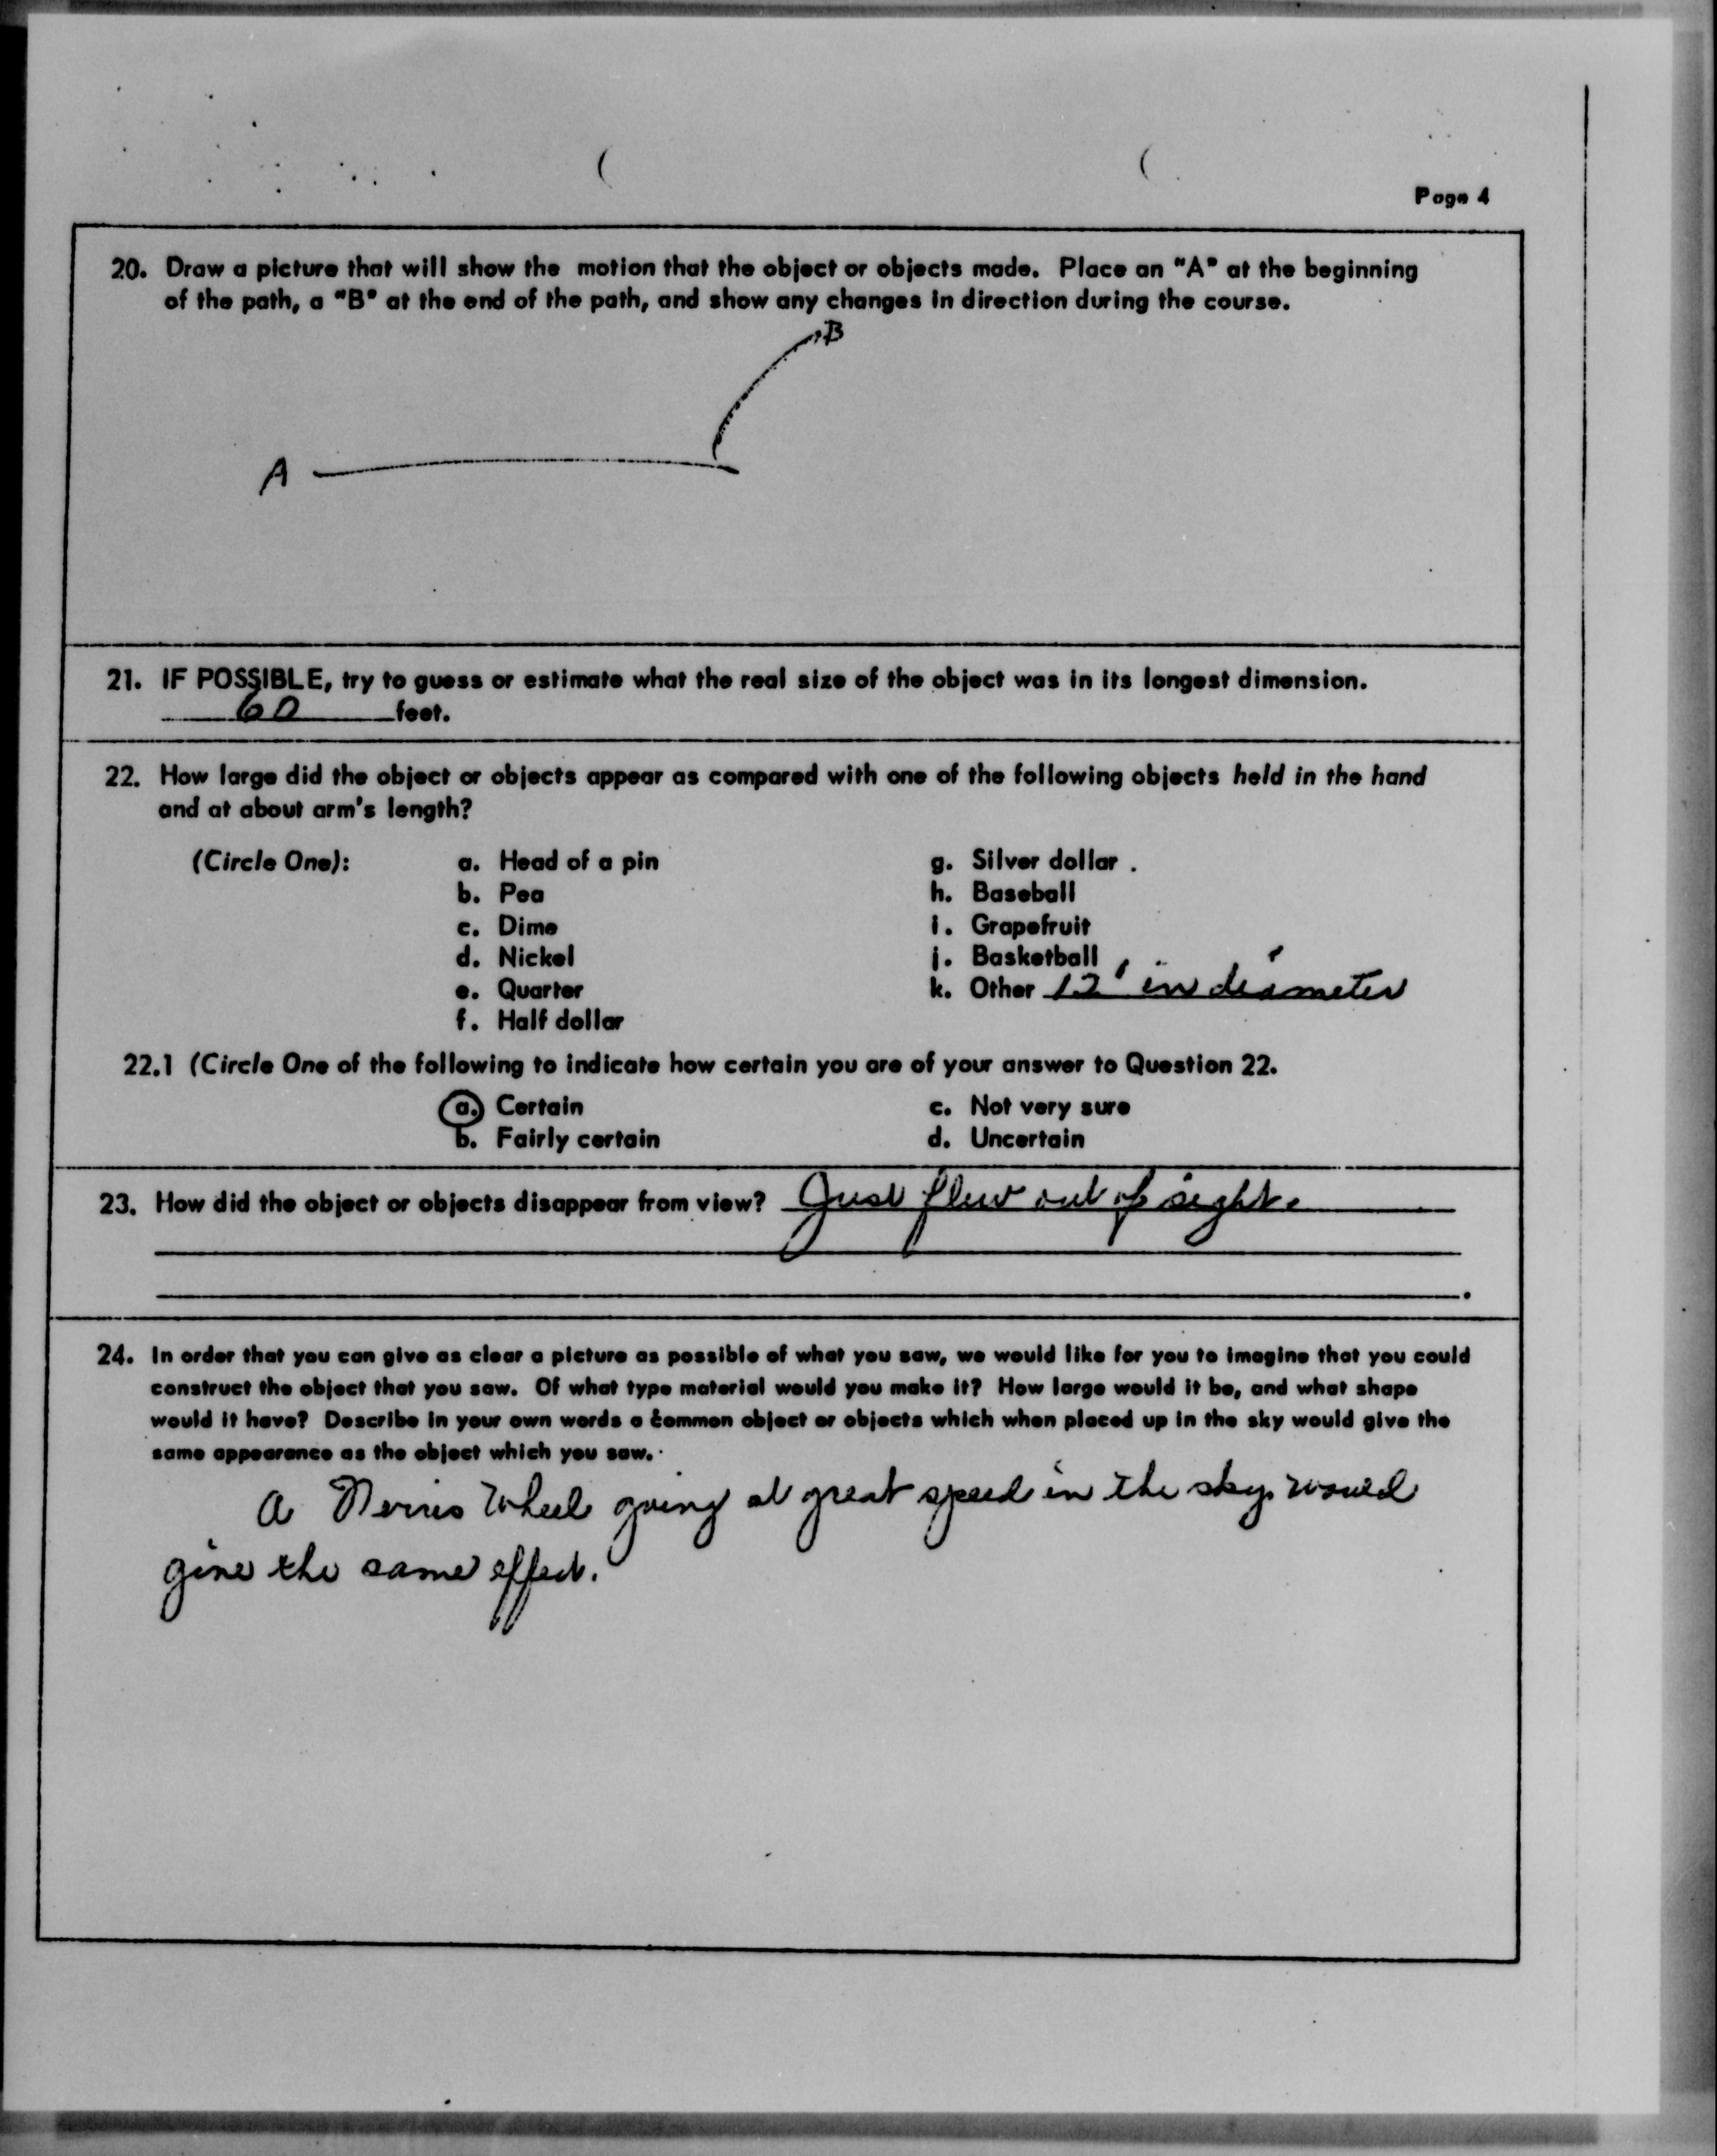 Page 4
20. Draw a picture that will show the motion that the object or objects made. Place an "A" at the beginning
of the path, a "B" at the end of the path, and show any changes in direction during the course.
B
A
21. IF POSSIBLE, try to guess or estimate what the real size of the object was in its longest dimension.
60 feet.
22. How large did the object or objects appear as compared with one of the following objects held in the hand
and at about arm's length?
(Circle One): a. Head of a pin g. Silver dollar
b. Pea h. Baseball
c. Dime i. Grapefruit
d. Nickel j. Basketball
e. Quarter k. Other 12' in diameter
f. Half dollar
22.1 (Circle One of the following to indicate how certain you are of your answer to Question 22.
a. Certain c. Not very sure
b. Fairly certain d. Uncertain
23. How did the object or objects disappear from view? Just flew out of sight.
24. In order that you can give as clear a picture as possible of what you saw, we would like for you to imagine that you could
construct the object that you saw. Of what type material would you make it? How large would it be, and what shape
would it have? Describe in your own words a common object or objects which when placed up in the sky would give the
same appearance as the object which you saw.
a Wheel going at great speed in the sky would
give the same effect.